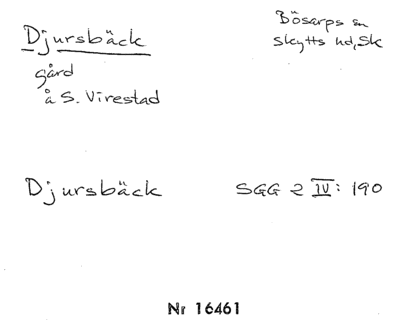 Djursbäck
Bösarps sn
Skytts hd, Sk
gård
å S. Virestad
Djursbäck
SGG 2 IV: 190
Nr 16461